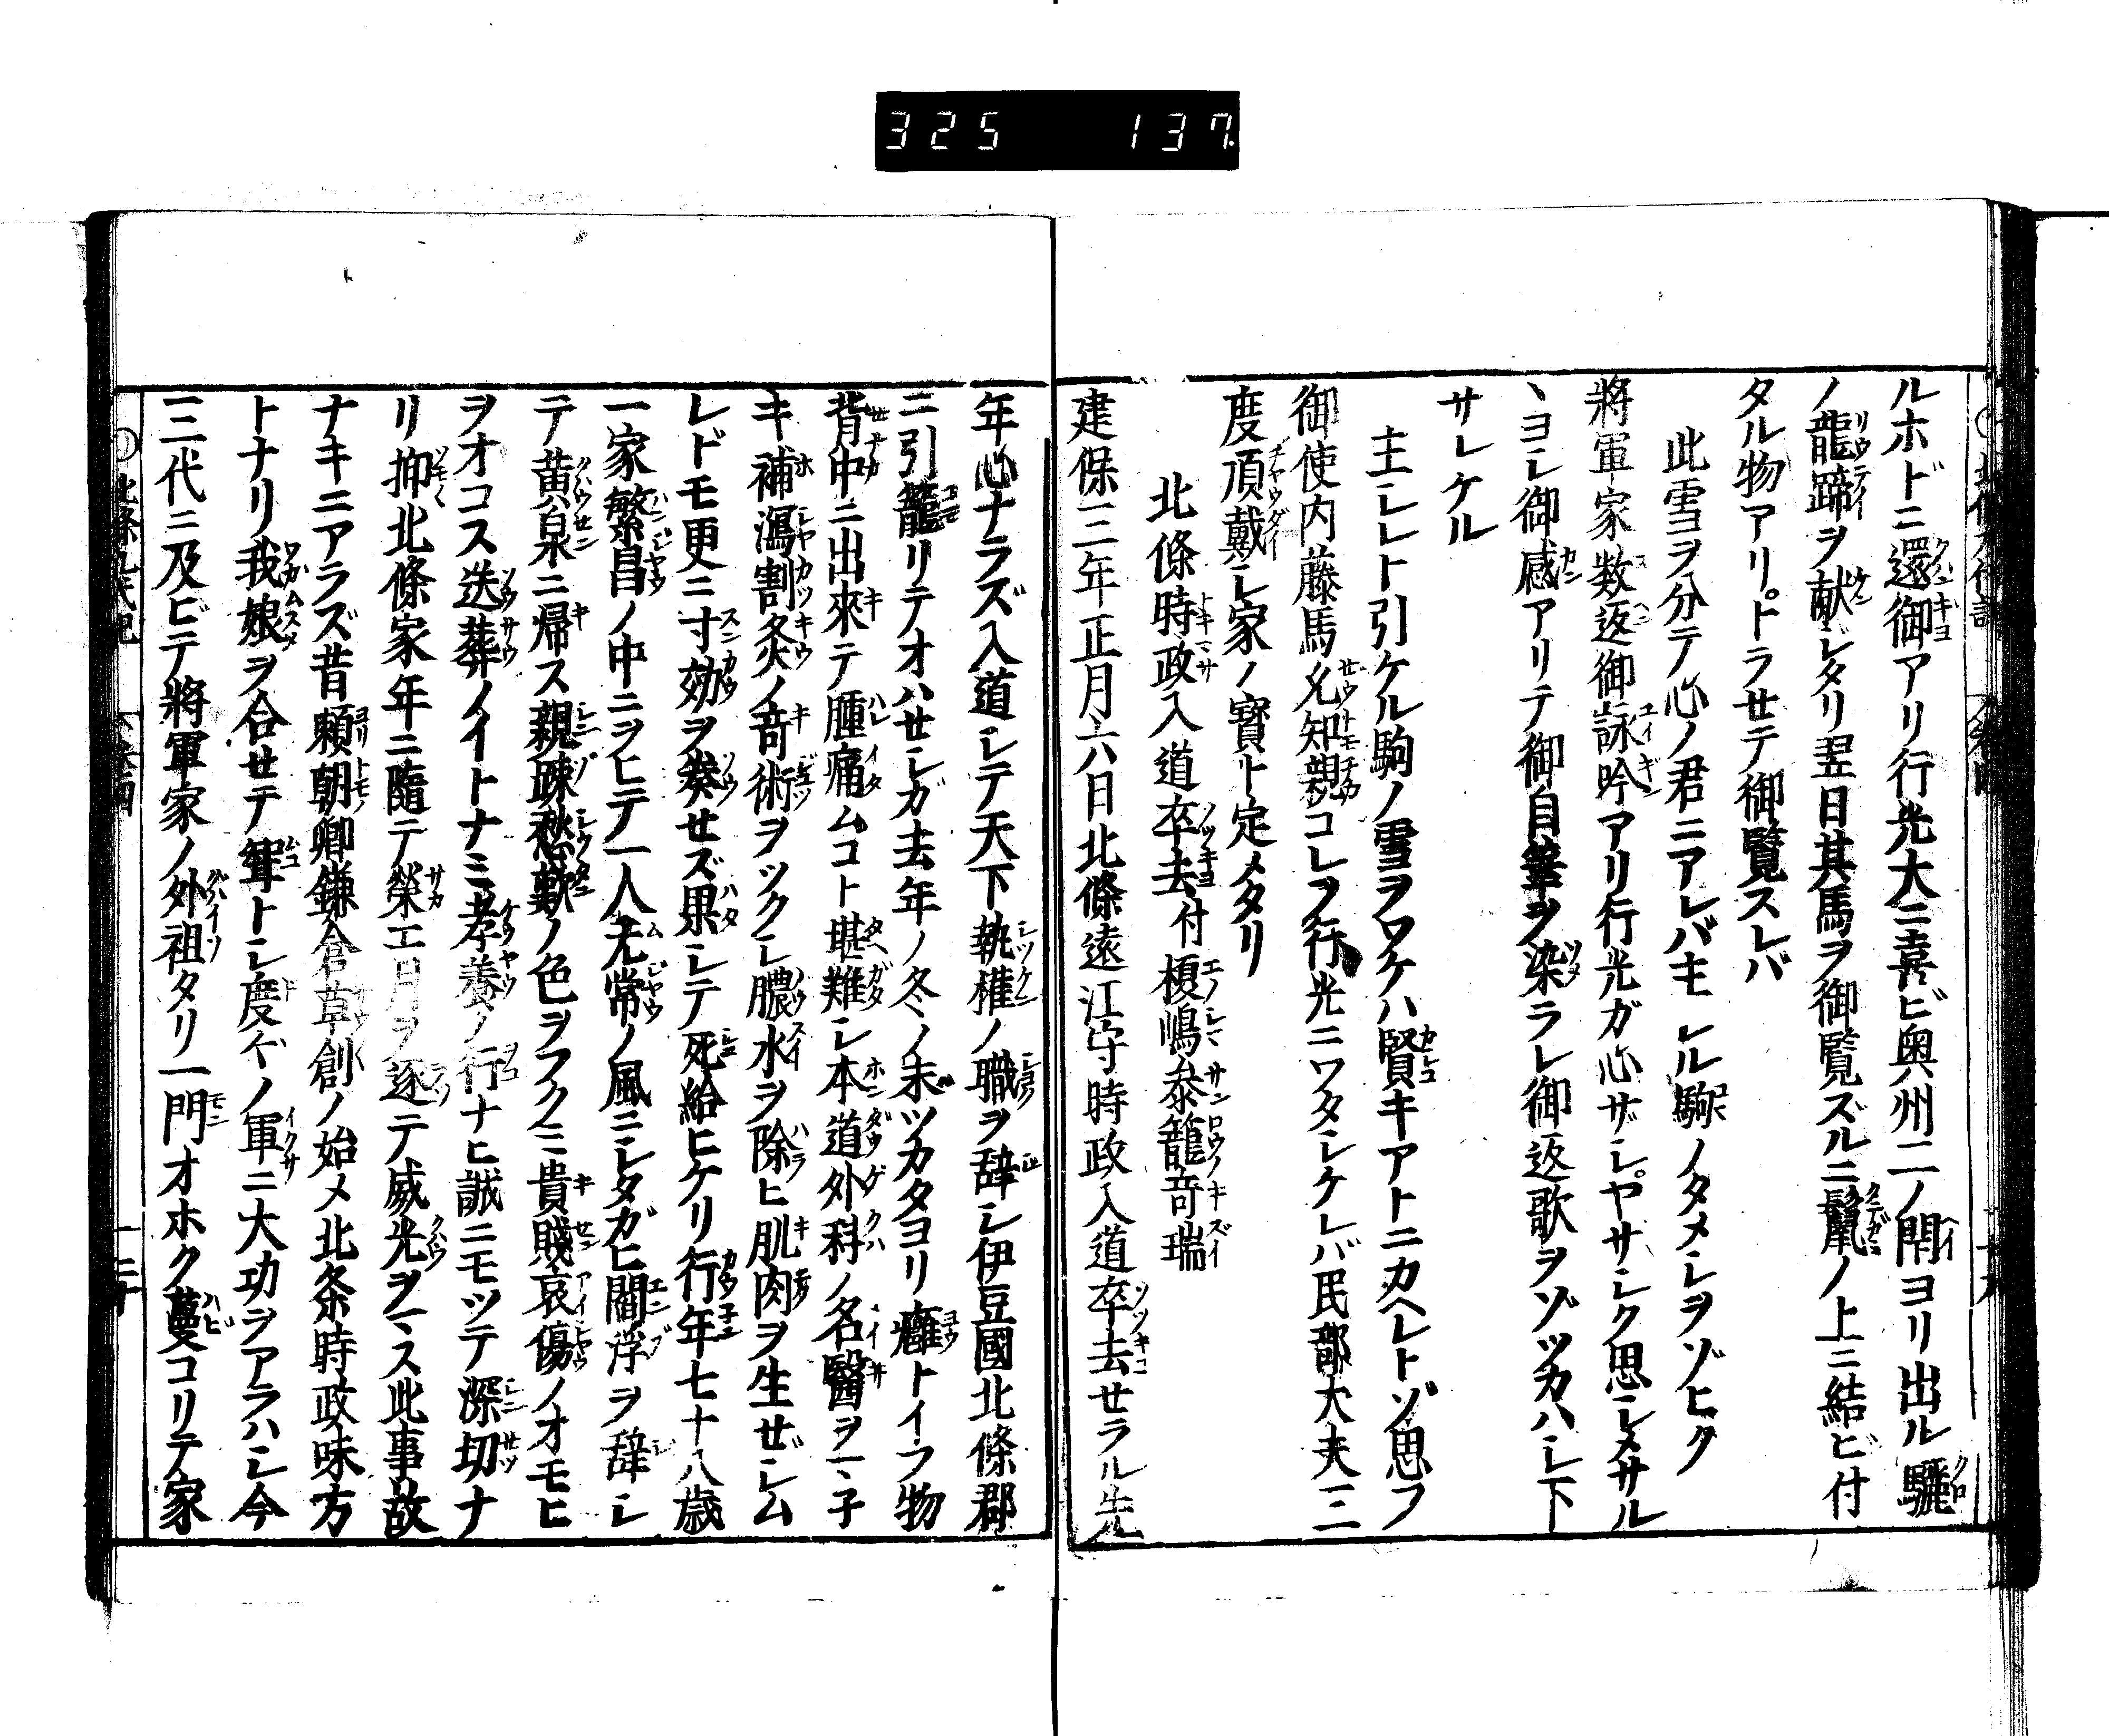 325 137
ルホドニ還御アリ行光大ニ喜ビ奥州二ノ閇ヨリ出ル驪
ノ龍蹄ヲ献シタリ翌日其馬ヲ御覧ズルニ鬣ノ上ニ結ビ付
タル物アリトラせテ御覧スレバ
此雪ヲ分テ心ノ君ニアレバ主シル駒ノタメシヲゾヒク
將軍家数返御詠吟アリ行光ガ心ザシヤサシク思シメサル
ヽヨシ御感アリテ御自筆ヲ染ラレ御返歌ヲゾツカハシ下
サレケル
主シレト引ケル駒ノ雪ヲワケハ賢キアトニカヘレトゾ思フ
御使内藤馬允知親コレヲ行光ニワタシケレバ民部大夫三
度頂戴シ家ノ寳ト定メタリ
北條時政入道卒去付榎嶋参籠奇瑞
建保三年正月六日北條遠江守時政入道卒去せラル先
年心ナラズ入道シテ天下執權ノ職ヲ辞シ伊豆國北條郡
ニ引籠リテオハせシガ去年ノ冬ノ末ツカタヨリ癰トイフ物
背中ニ出來テ腫痛ムコト堪難シ本道外科ノ名醫ヲ
キ補瀉割灸ノ奇術ヲツクシ膿水ヲ除ヒ肌肉ヲ生ぜシム
レドモ更ニ寸効ヲ奏せズ果シテ死給ヒケリ行年七十八歳
一家繁昌ノ中ニヲヒテ一人无常ノ風ニシタガヒ閻浮ヲ辞シ
テ黄泉ニ帰ス親踈愁歎ノ色ヲフクミ貴賤哀傷ノオモヒ
ヲオコス送葬ノイトナミ孝養ノ行ナヒ誠ニモツテ深切ナ
リ抑北條家年ニ隨テ榮エ月ヲ逐テ威光ヲマス此事故
ナキニアラズ昔頼朝卿鎌倉草創ノ始メ北条時政味方
トナリ我娘ヲ合せテ聟トシ度々ノ軍ニ大功ヲアラハシ今
三代ニ及ビテ將軍家ノ外祖タリ一門オホク蔓コリテ家